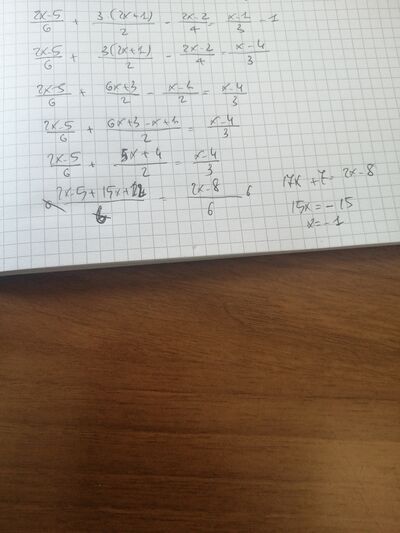 (2x-5)/6 + 3(2x+1)/2 - (2x-2)/4 = (x-1)/3 - 1
(2x-5)/6 + 3(2x+1)/2 - (2x-2)/4 = (x-4)/3
(2x-5)/6 + (6x+3)/2 - (x-1)/2 = (x-4)/3
(2x-5)/6 + (6x+3-x+1)/2 = (x-4)/3
(2x-5)/6 + (5x+4)/2 = (x-4)/3
(2x-5+15x+12)/6 = (2x-8)/6 6
17x + 7 = 2x-8
15x = -15
x = -1